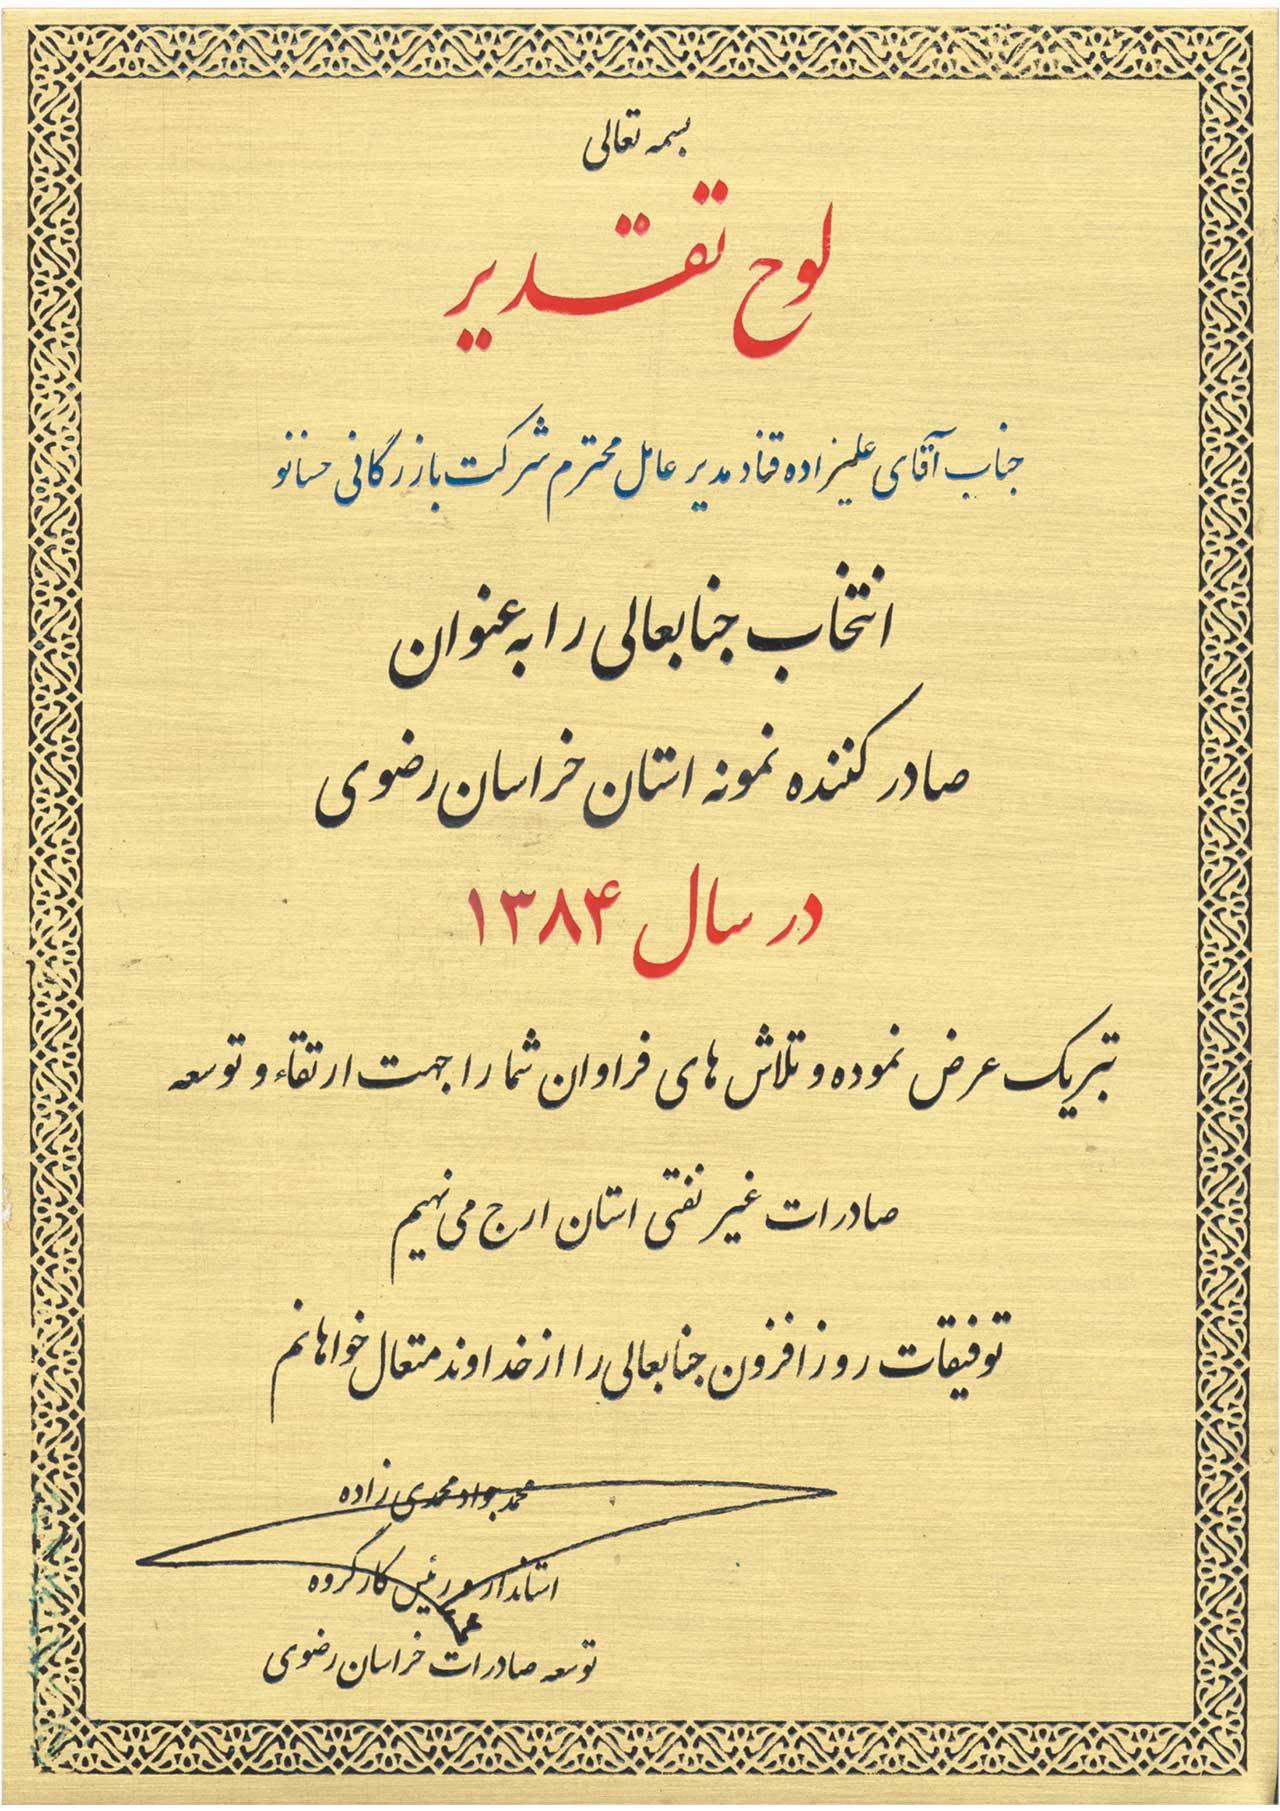 بسمه تعالی
لوح تقدیر
جناب آقای علیزاده قناد مدیر عامل محترم شرکت بازرگانی حسانو
انتخاب جنابعالی را به عنوان
صادر کننده نمونه استان خراسان رضوی
در سال ۱۳۸۴
تبریک عرض نموده و تلاش های فراوان شما را جهت ارتقاء و توسعه
صادرات غیر نفتی استان ارج می نهیم
توفیقات روز افزون جنابعالی را از خداوند متعال خواهانم
محمد جواد محمدی زاده
استاندار و رئیس کارگروه
توسعه صادرات خراسان رضوی